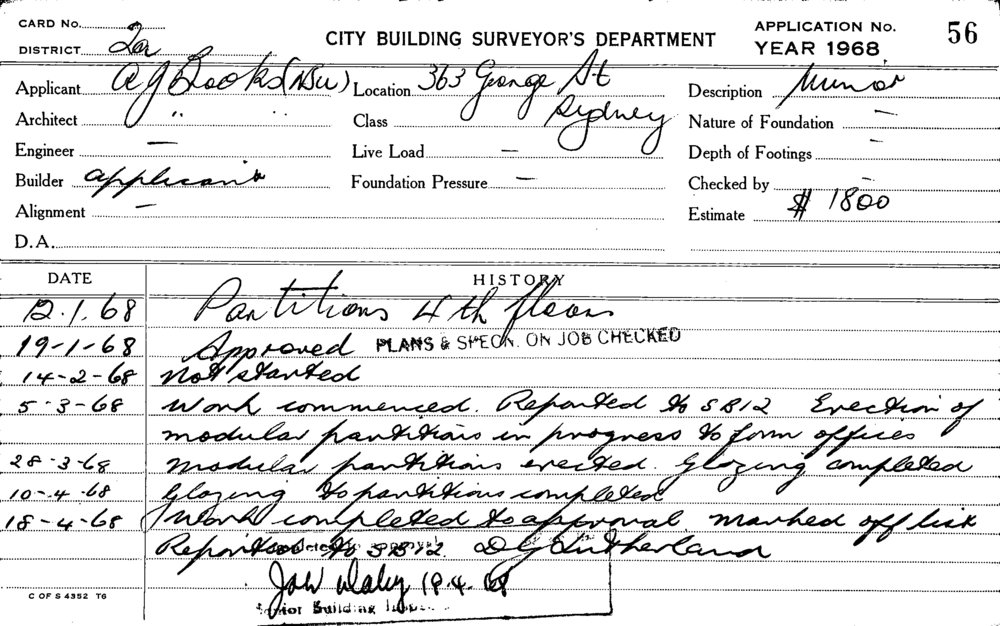 CARD No.
DISTRICT
CITY BUILDING SURVEYOR'S DEPARTMENT
APPLICATION No. 56
YEAR 1968
Applicant A J Books (NSW) Location 363 George St Description Minor
Architect " " Class Sydney Nature of Foundation —
Engineer — Live Load — Depth of Footings —
Builder applicant Foundation Pressure — Checked by —
Alignment — Estimate $ 1800
D.A.
DATE HISTORY
12.1.68 Partitions 4th floor
19-1-68 Approved PLANS & SPECN. ON JOB CHECKED
14-2-68 Not started
5-3-68 Work commenced. Reported to SB12 Erection of
modular partitions in progress to form offices
28-3-68 Modular partitions erected. Glazing completed
10-4-68 Glazing to partitions completed
18-4-68 Work completed to approval. Marked off list
Reported to SB12 D G Sutherland
18.4.68
Senior Building
C OF S 4352 T6